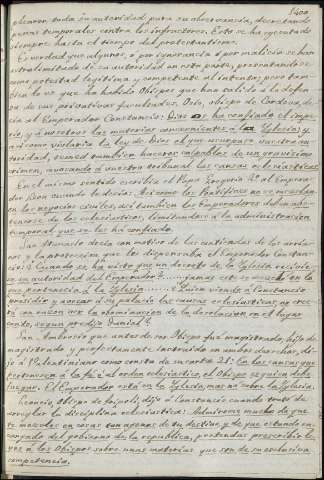 1400
plearon toda su autoridad para su observancia, decretando
penas temporales contra los infractores. Esto se ha ejecutado
siempre hasta el tiempo del protestantismo.
Es verdad que algunos, ó por ignorancia ó por malicia se han
extralimitado de su autoridad en esta parte, presentando se
como potestad legítima y competente al intento; pero tam-
bien lo es que ha habido Obispos que han salido á la defen-
sa de sus privativas facultades. Osio, obispo de Cordova, de-
cia al Emperador Constancio: Dios os ha confiado el impe-
rio, y á nosotros las materias concernientes á la Iglesia; y
asi como violaria la ley de Dios el que usurpara vuestra au-
toridad, temed tambien haceros culpables de un gravísimo
crimen, avocando á vuestro tribunal las causas eclesiásticas.
En el mismo sentido escribia el Papa Gregorio 2º al Empera-
dor Leon cuando le decia: Asi como los Pontífices no se mezclan
en los negocios civiles, asi tambien los Emperadores deben abs-
tenerse de los eclesiasticos, limitandose á la administracion
temporal que se les ha confiado.
San Atanasio decia con motivo de las contiendas de los arria-
nos y la proteccion que les dispensaba el Emperador Constan-
cio: Cuando se ha visto que un decreto de la Iglesia recibie-
se su autoridad del Emperador?
pertenencia á la Iglesia ...... Quien viendo á Constancio
presidir y avocar á su palacio las causas eclesiasticas, no cree-
rá con razon ver la abominacion de la desolacion en el lugar
santo, segun predijo Daniel?
San Ambrosio que antes de ser Obispo fué magistrado, hijo de
magistrado y profundamente instruido en ambos derechos, di-
jo á Valentiniano como consta de su carta 21: En las causas que
pertenecen á la fé ó al orden eclesiastico, el Obispo es quien debe
juzgar. El Emperador está en la Iglesia, mas no sobre la Iglesia.
Leoncio, obispo de Tripoli, dijo á Constancio cuando trató de
arreglar la disciplina eclesiastica: Admirome mucho de que
te mezcles en cosas tan agenas de tu destino, y de que estando en-
cargado del gobierno de la republica, pretendas prescribir le-
yes á los Obispos sobre unas materias que son de su exclusiva
competencia.